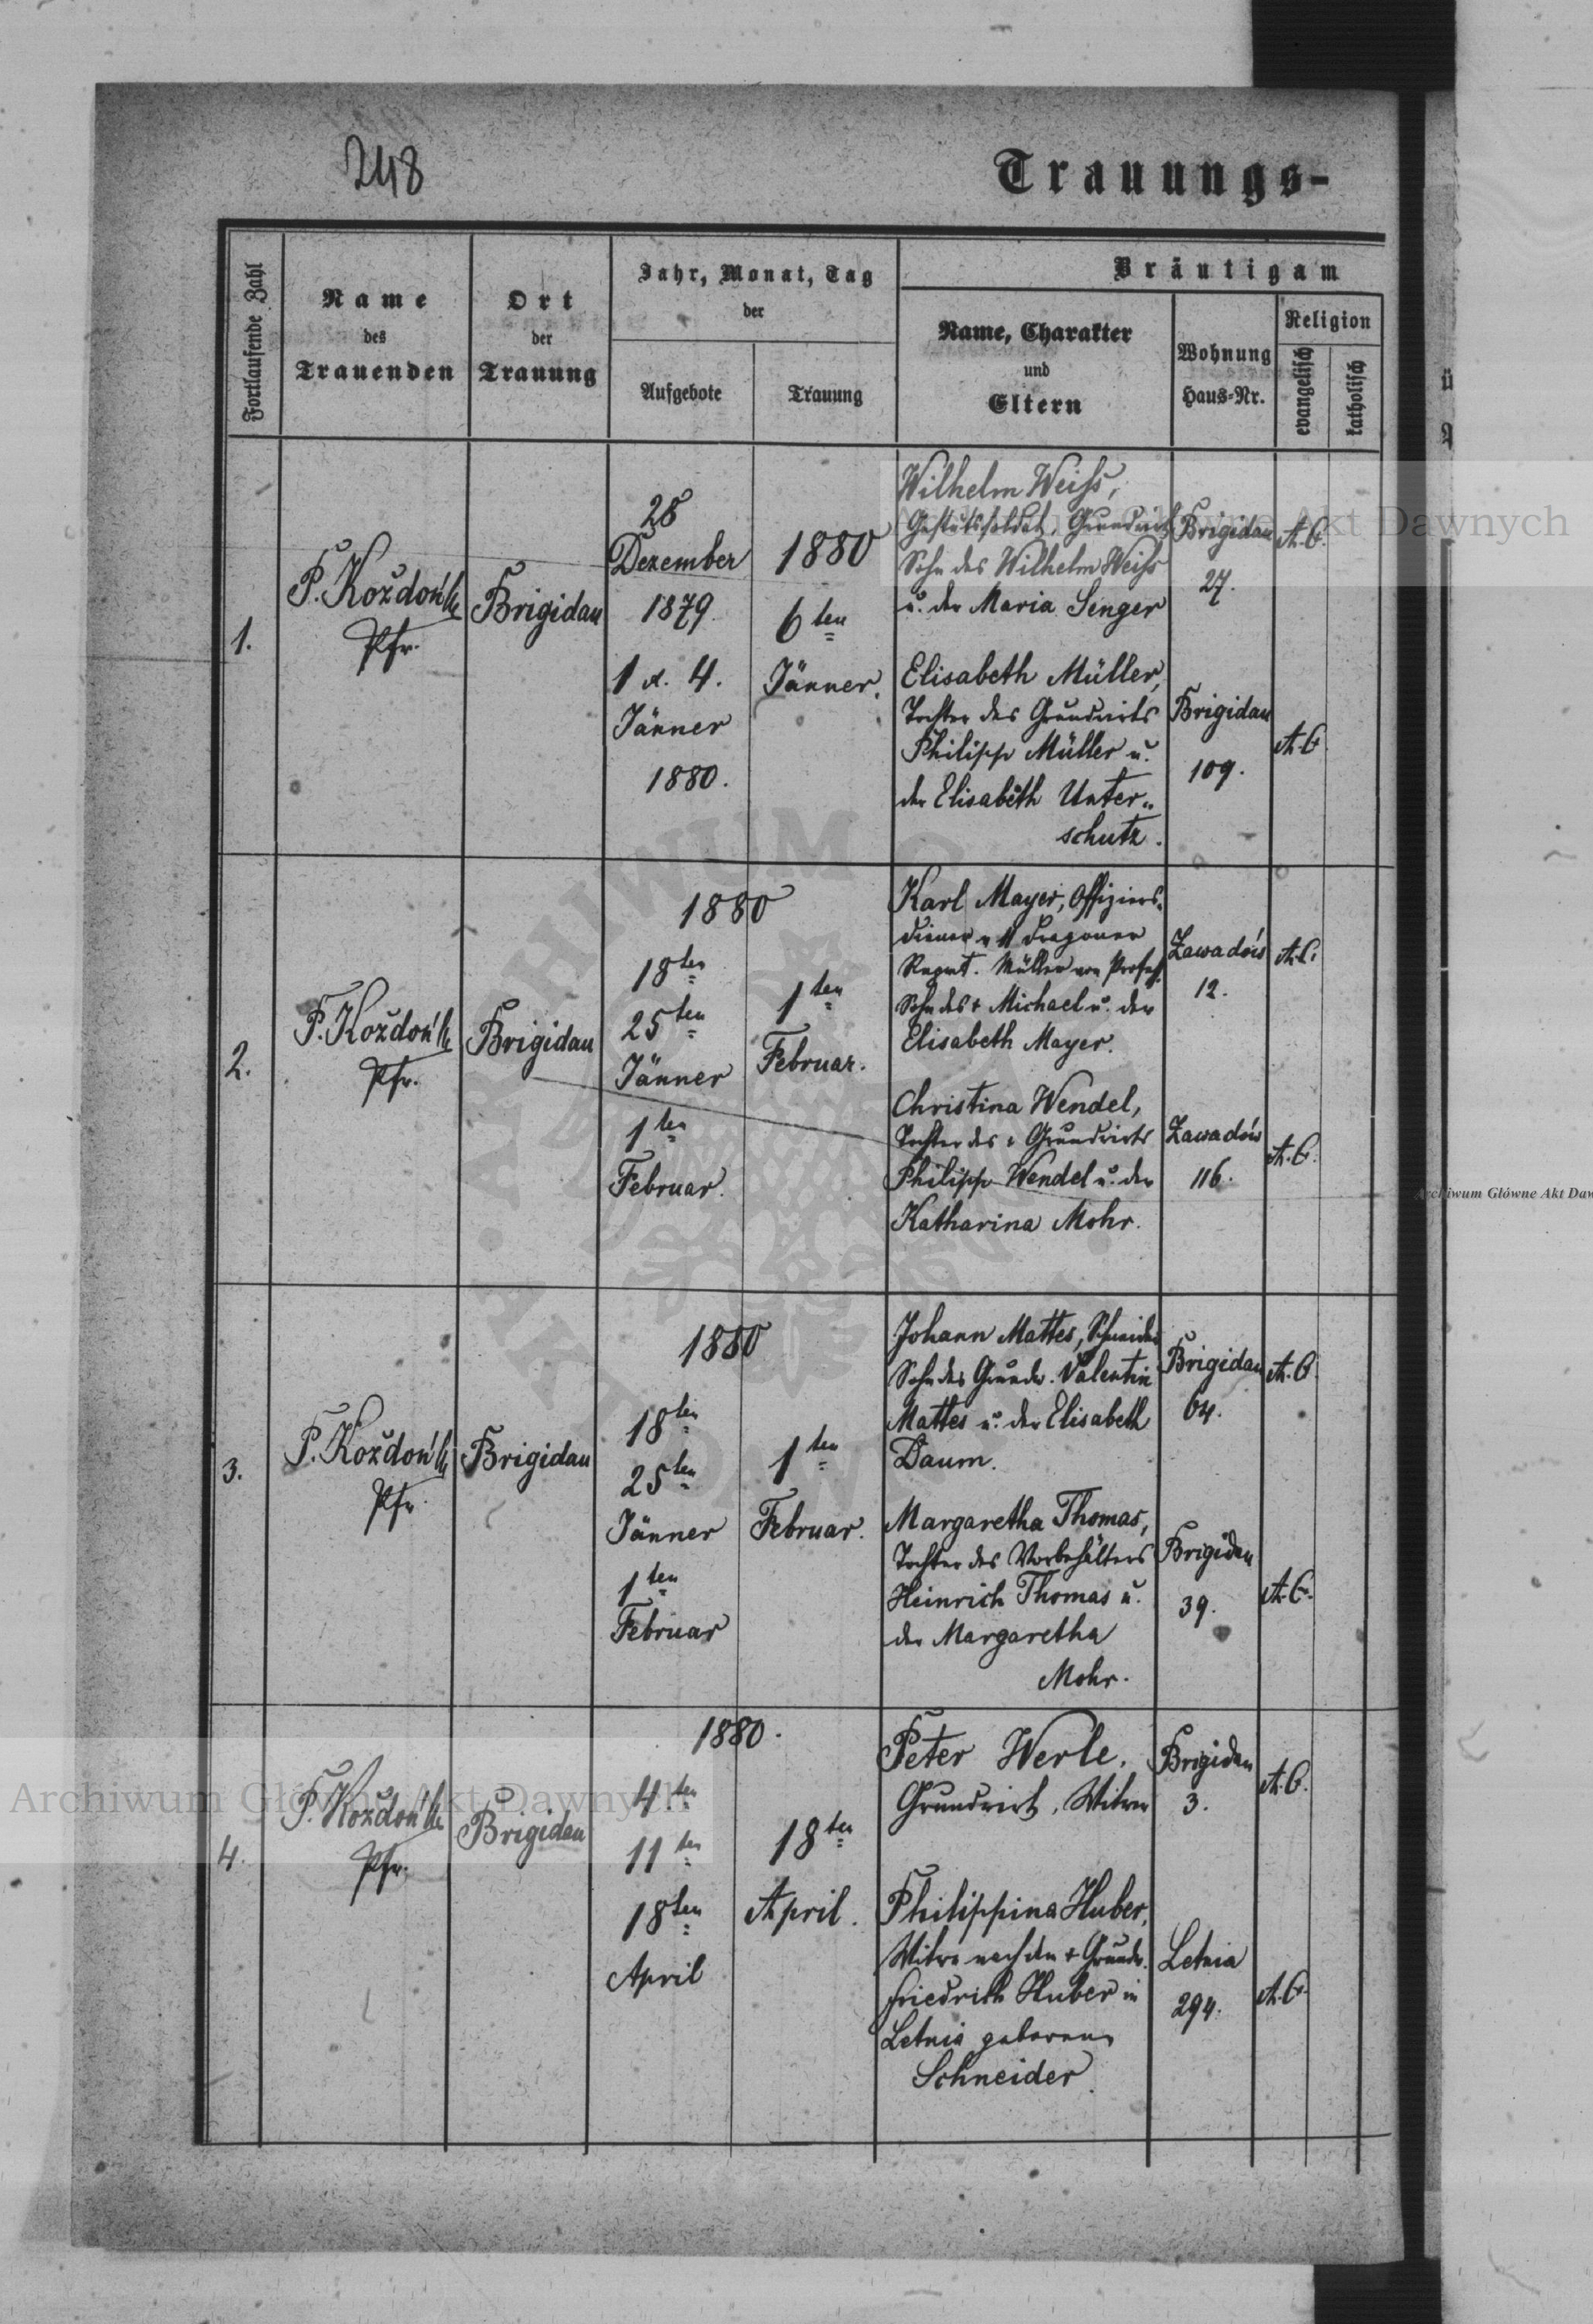 248
Trauungs-
Fortlaufende Zahl
Name
des
Trauenden
Ort
der
Trauung
Jahr, Monat, Tag
der
Aufgebote
Trauung
Bräutigam
Name, Charakter
und
Eltern
Wohnung
Haus-Nr.
Religion
evangelisch
katholisch
1.
P. Koždoń
Pfr.
Brigidau
28
Dezember
1879
1 u. 4.
Jänner
1880.
1880
6ten
Jänner.
Wilhelm Weiss,
Gestütssoldat, Grundwirt
Sohn des Wilhelm Weiss
u. der Maria Senger
Brigidau
27.
A. C.
Elisabeth Müller,
Tochter des Grundwirts
Philipp Müller u.
der Elisabeth Unter-
schutz.
Brigidau
109.
A. C.
2.
P. Koždoń
Pfr.
Brigidau
1880
18ten
25ten
Jänner
1ten
Februar.
1ten
Februar.
Karl Mayer, Offiziers-
diener 11 Dragoner
Regmt. Müller von Profess.
Sohn des + Michael u. der
Elisabeth Mayer.
Zawadów
12.
A. C.
Christina Wendel,
Tochter des + Grundwirts
Philipp Wendel u. der
Katharina Mohr.
Zawadów
116.
A. C.
3.
P. Koždoń
Pfr.
Brigidau
1880
18ten
25ten
Jänner
1ten
Februar
1ten
Februar.
Johann Mattes, Schneider
Sohn des Grundw. Valentin
Mattes u. der Elisabeth
Daum.
Brigidau
64.
A. C.
Margaretha Thomas,
Tochter des Vorbehälters
Heinrich Thomas u.
der Margaretha
Mohr.
Brigidau
39.
A. C.
4.
P. Koždoń
Pfr.
Brigidau
1880.
4ten
11ten
18ten
April
18ten
April.
Peter Werle,
Grundwirt, Witwer
Brigidau
3.
A. C.
Philippina Huber,
Witwe nach dem + Grundw.
Friedrich Huber in
Letnia geborene
Schneider.
Letnia
294.
A. C.
Archiwum Główne Akt Dawnych